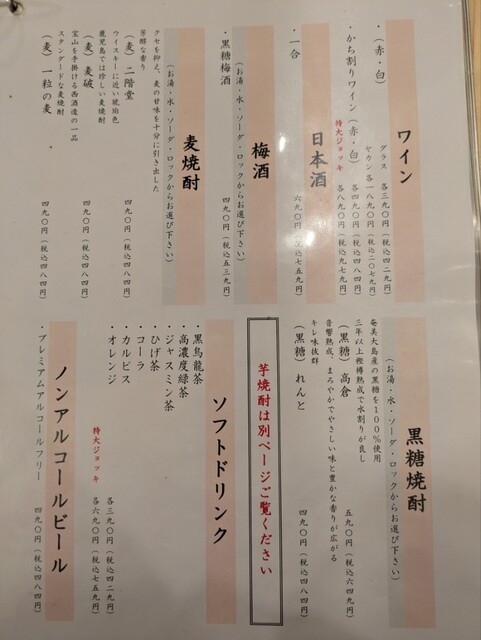 ワイン
・(赤・白)
グラス 各三九〇円(税込四二九円)
ヤカン各一八九〇円(税込二〇七九円)
・かち割りワイン(赤・白)
各四九〇円(税込
特大ジョッキ 各八九〇円(税込九七九円)
日本酒
・一合
六九〇円(税込七五九円)
梅酒
(お湯・水・ソーダ・ロックからお選び下さい)
・黒糖梅酒
四九〇円(税込五三九円)
麦焼酎
(お湯・水・ソーダ・ロックからお選び下さい)
クセを抑え、麦の甘味を十分に引き出した
芳醇な香り
(麦)二階堂
四九〇円(税込四八四円)
ウイスキーに近い琥珀色
鹿児島では珍しい麦焼酎
(麦)麦破
四九〇円(税込四八四円)
宝山を手掛ける西酒造の一品
スタンダードな麦焼酎
(麦)一粒の麦
四九〇円(税込四八四円)
黒糖焼酎
(お湯・水・ソーダ・ロックからお選び下さい)
奄美大島産の黒糖を100%使用
三年以上樫樽熟成で水割りが良し
(黒糖)高倉
五九〇円(税込六四九円)
音響熟成、まろやかでやさしい味と豊かな香りが広がる
キレ味抜群
(黒糖)れんと
四九〇円(税込四八四円)
芋焼酎は別ページご覧ください
ソフトドリンク
・黒烏龍茶
・高濃度緑茶
・ジャスミン茶
・ひげ茶
・コーラ
・カルピス
・オレンジ
各三九〇円(税込四二九円)
特大ジョッキ 各六九〇円(税込七五九円)
ノンアルコールビール
・プレミアムアルコールフリー
四九〇円(税込四八四円)